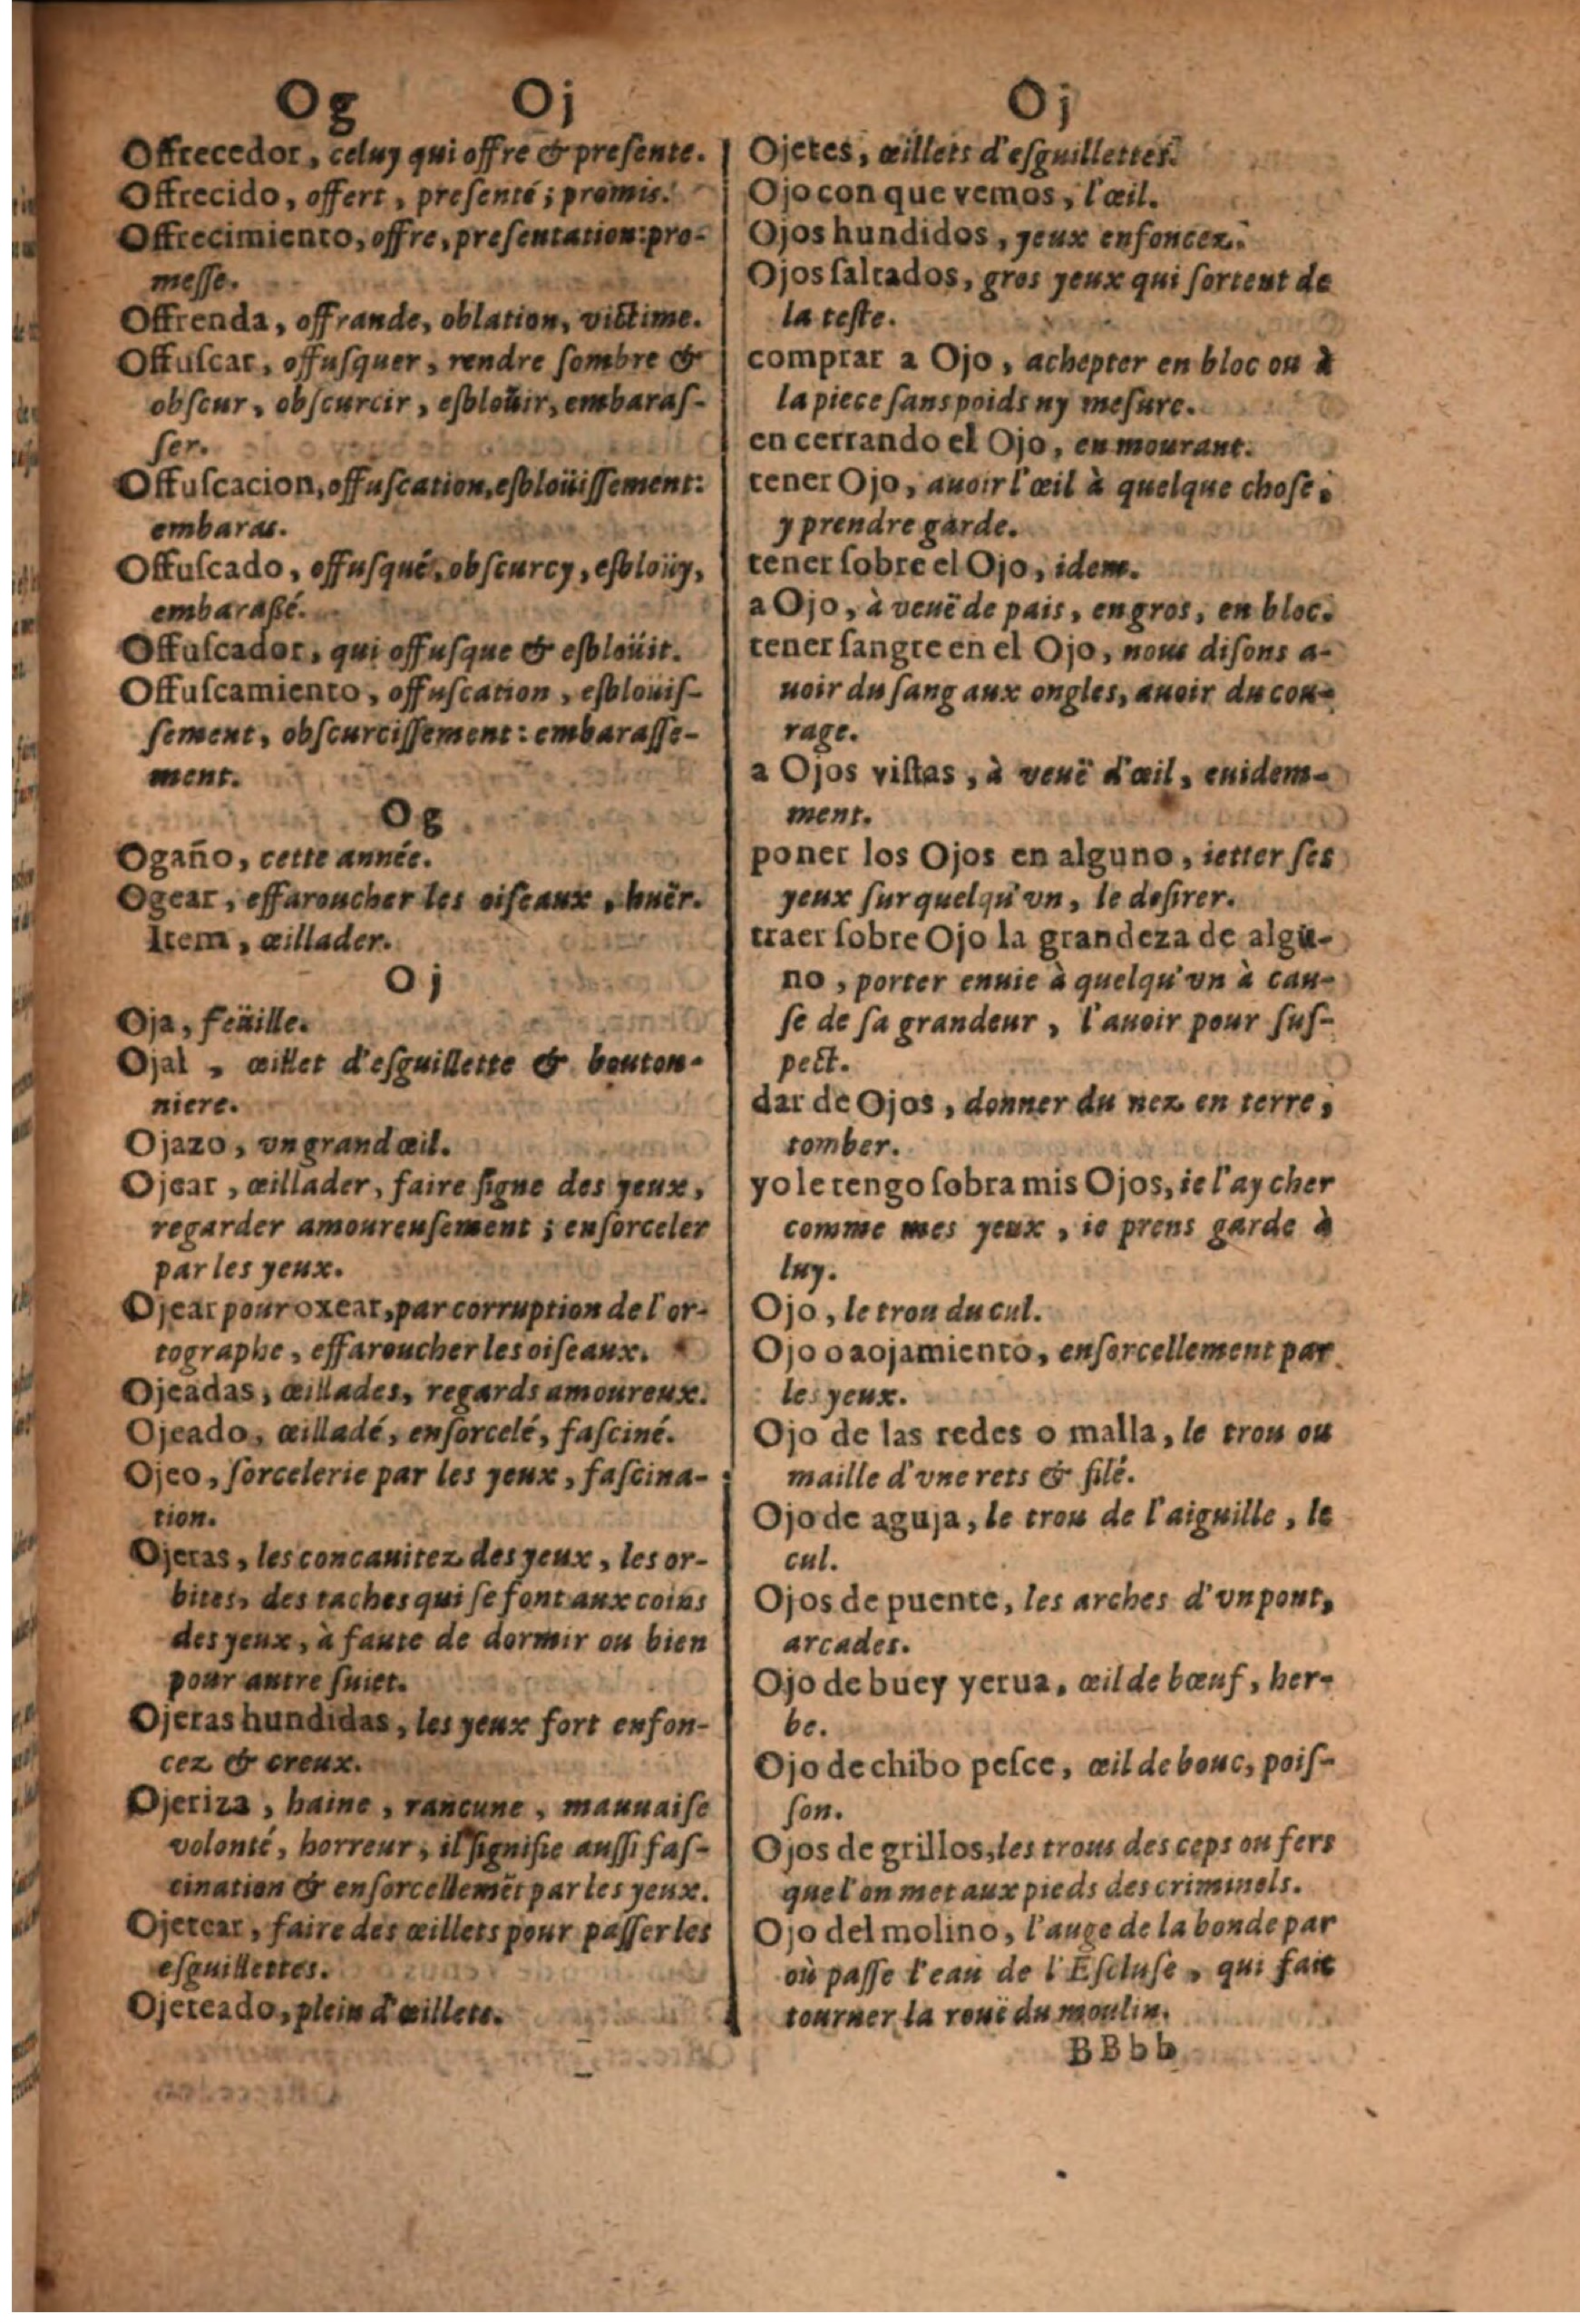 Og Oj
Offrecedor, celuy qui offre & preſente.
Offrecido, offert, preſenté; promis.
Offrecimiento, offre, preſentation: pro-
meſſe.
Offrenda, offrande, oblation, victime.
Offuſcar, offuſquer, rendre ſombre &
obſcur, obſcurcir, eſbloüir, embaraſ-
ſer.
Offuſcacion, offuſcation, eſbloüiſſement:
embaras.
Offuſcado, offuſqué, obſcurcy, eſbloüy,
embaraßé.
Offuſcador, qui offuſque & eſbloüit.
Offuſcamiento, offuſcation, eſblouiſ-
ſement, obſcurciſſement: embaraſſe-
ment.
Og
Ogaño, cette année.
Ogear, effaroucher les oiſeaux, huër.
Item, œillader.
Oj
Oja, feüille.
Ojal, œillet d'eſguillette & bouton-
niere.
Ojazo, vn grand œil.
Ojear, œillader, faire ſigne des yeux,
regarder amoureuſement; enſorceler
par les yeux.
Ojear pour oxear, par corruption de l'or-
tographe, effaroucher les oiſeaux.
Ojeadas, œillades, regards amoureux.
Ojeado, œilladé, enſorcelé, faſciné.
Ojeo, ſorcelerie par les yeux, faſcina-
tion.
Ojeras, les concauitez des yeux, les or-
bites, des taches qui ſe font aux coins
des yeux, à faute de dormir ou bien
pour autre ſuiet.
Ojeras hundidas, les yeux fort enfon-
cez & creux.
Ojeriza, haine, rancune, mauuaiſe
volonté, horreur, il ſignifie auſſi faſ-
cination & enſorcellemẽt par les yeux.
Ojetear, faire des œillets pour paſſer les
eſguillettes.
Ojeteado, plein d'œillets.
Oj
Ojetes, œillets d'eſguillettes.
Ojo con que vemos, l'œil.
Ojos hundidos, yeux enfoncez.
Ojos ſaltados, gros yeux qui ſortent de
la teſte.
comprar a Ojo, achepter en bloc ou à
la piece ſans poids ny meſure.
en cerrando el Ojo, en mourant.
tener Ojo, auoir l'œil à quelque choſe,
y prendre garde.
tener ſobre el Ojo, idem.
a Ojo, à veuë de pais, en gros, en bloc.
tener ſangre en el Ojo, nous diſons a-
uoir du ſang aux ongles, auoir du cou-
rage.
a Ojos viſtas, à veuë d'œil, euidem-
ment.
poner los Ojos en alguno, ietter ſes
yeux ſur quelqu'vn, le deſirer.
traer ſobre Ojo la grandeza de algu-
no, porter enuie à quelqu'vn à cau-
ſe de ſa grandeur, l'auoir pour ſuſ-
pect.
dar de Ojos, donner du nez en terre,
tomber.
yo le tengo ſobra mis Ojos, ie l'ay cher
comme mes yeux, ie prens garde à
luy.
Ojo, le trou du cul.
Ojo o aojamiento, enſorcellement par
les yeux.
Ojo de las redes o malla, le trou ou
maille d'vne rets & filé.
Ojo de aguja, le trou de l'aiguille, le
cul.
Ojos de puente, les arches d'vn pont,
arcades.
Ojo de buey yerua, œil de bœuf, her-
be.
Ojo de chibo peſce, œil de bouc, poiſ-
ſon.
Ojos de grillos, les trous des ceps ou fers
que l'on met aux pieds des criminels.
Ojo del molino, l'auge de la bonde par
où paſſe l'eau de l'Eſcluſe, qui fait
tourner la rouë du moulin.
BBbb